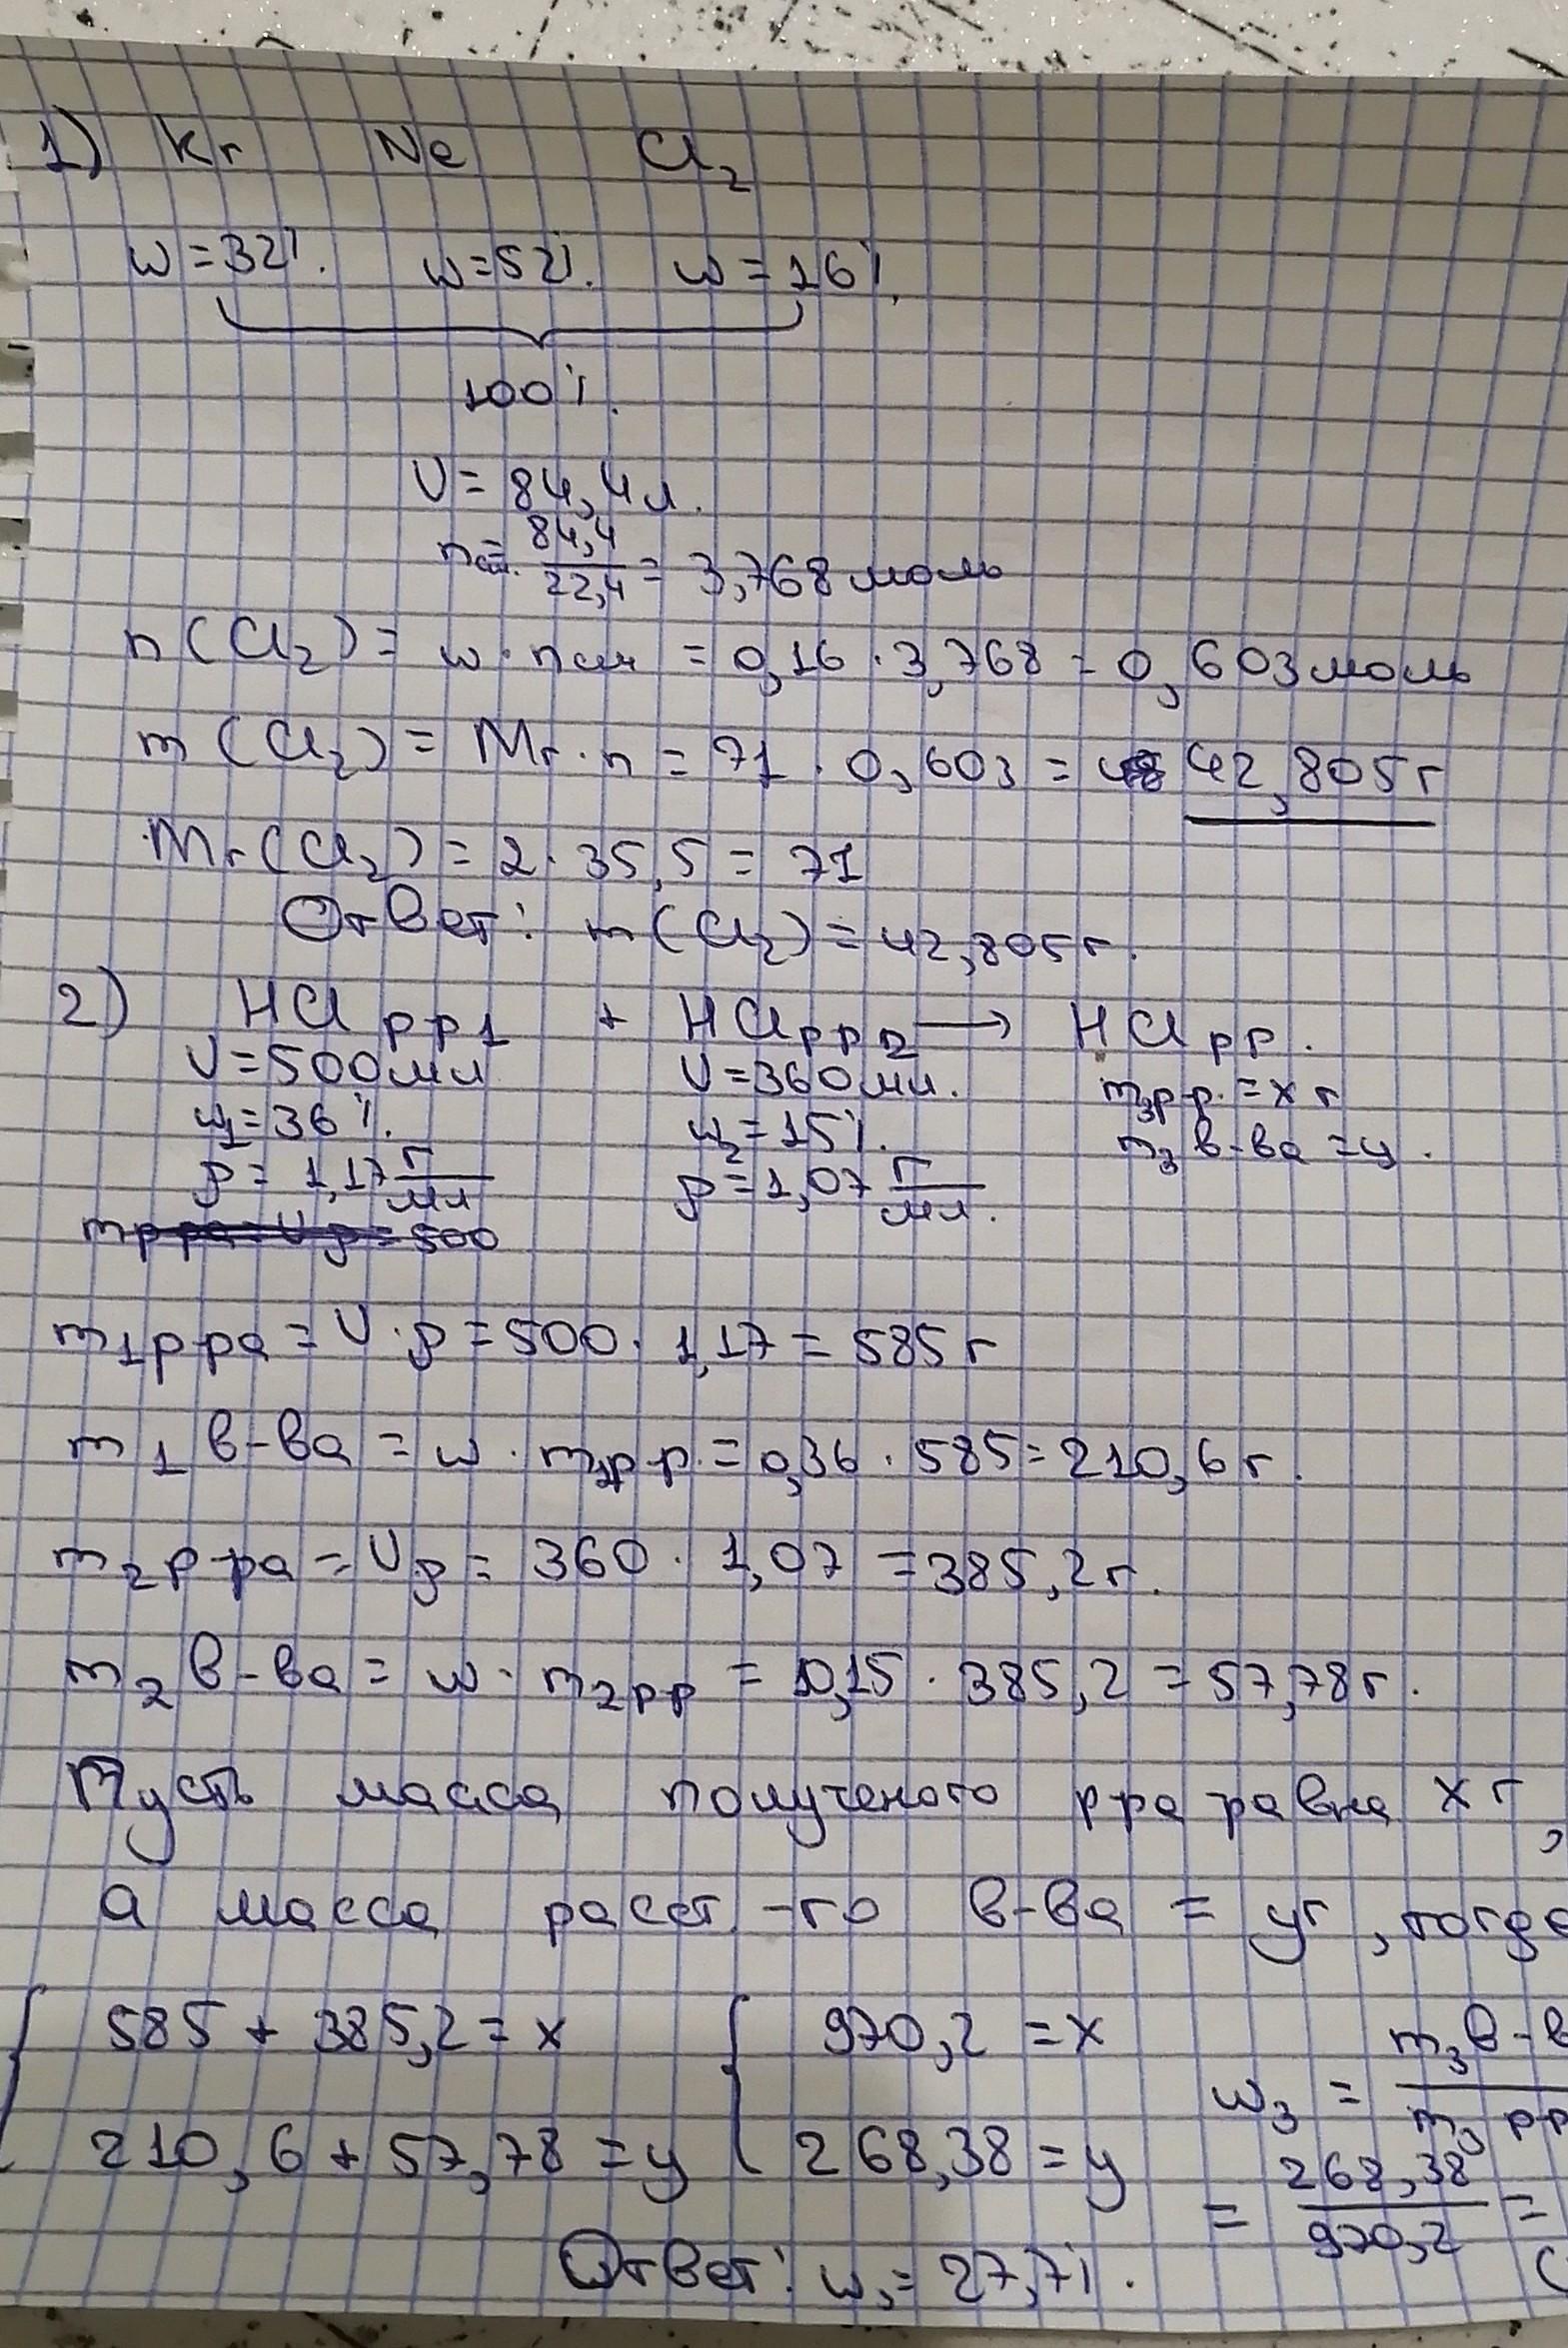 1) Kr Ne Cl₂
w = 32% w = 52% w = 16%
100%
V = 84,4 л.
n см. = 84,4 / 22,4 = 3,768 моль
n(Cl₂) = w · n см = 0,16 · 3,768 = 0,603 моль
m(Cl₂) = Mr · n = 71 · 0,603 = 42,805 г
Mr(Cl₂) = 2 · 35,5 = 71
Ответ: m(Cl₂) = 42,805 г.
2) HCl рр1 + HCl рр2 → HCl рр.
V = 500 мл V = 360 мл. m₃ р-р. = x г
w₁ = 36%. w₂ = 15%. m₃ в-ва = y.
ρ = 1,17 г/мл ρ = 1,07 г/мл.
m р-ра = V ρ = 500
m₁ р-ра = V · ρ = 500 · 1,17 = 585 г
m₁ в-ва = w · m₁ р-р. = 0,36 · 585 = 210,6 г.
m₂ р-ра = Vρ = 360 · 1,07 = 385,2 г.
m₂ в-ва = w · m₂ рр = 0,15 · 385,2 = 57,78 г.
Пусть масса полученого р-ра равна x г,
а масса раст.-го в-ва = y г, тогда
585 + 385,2 = x 970,2 = x w₃ = m₃ в-в / m₃ рр
210,6 + 57,78 = y 268,38 = y = 268,38 / 970,2 =
Ответ: w₃ = 27,7%.